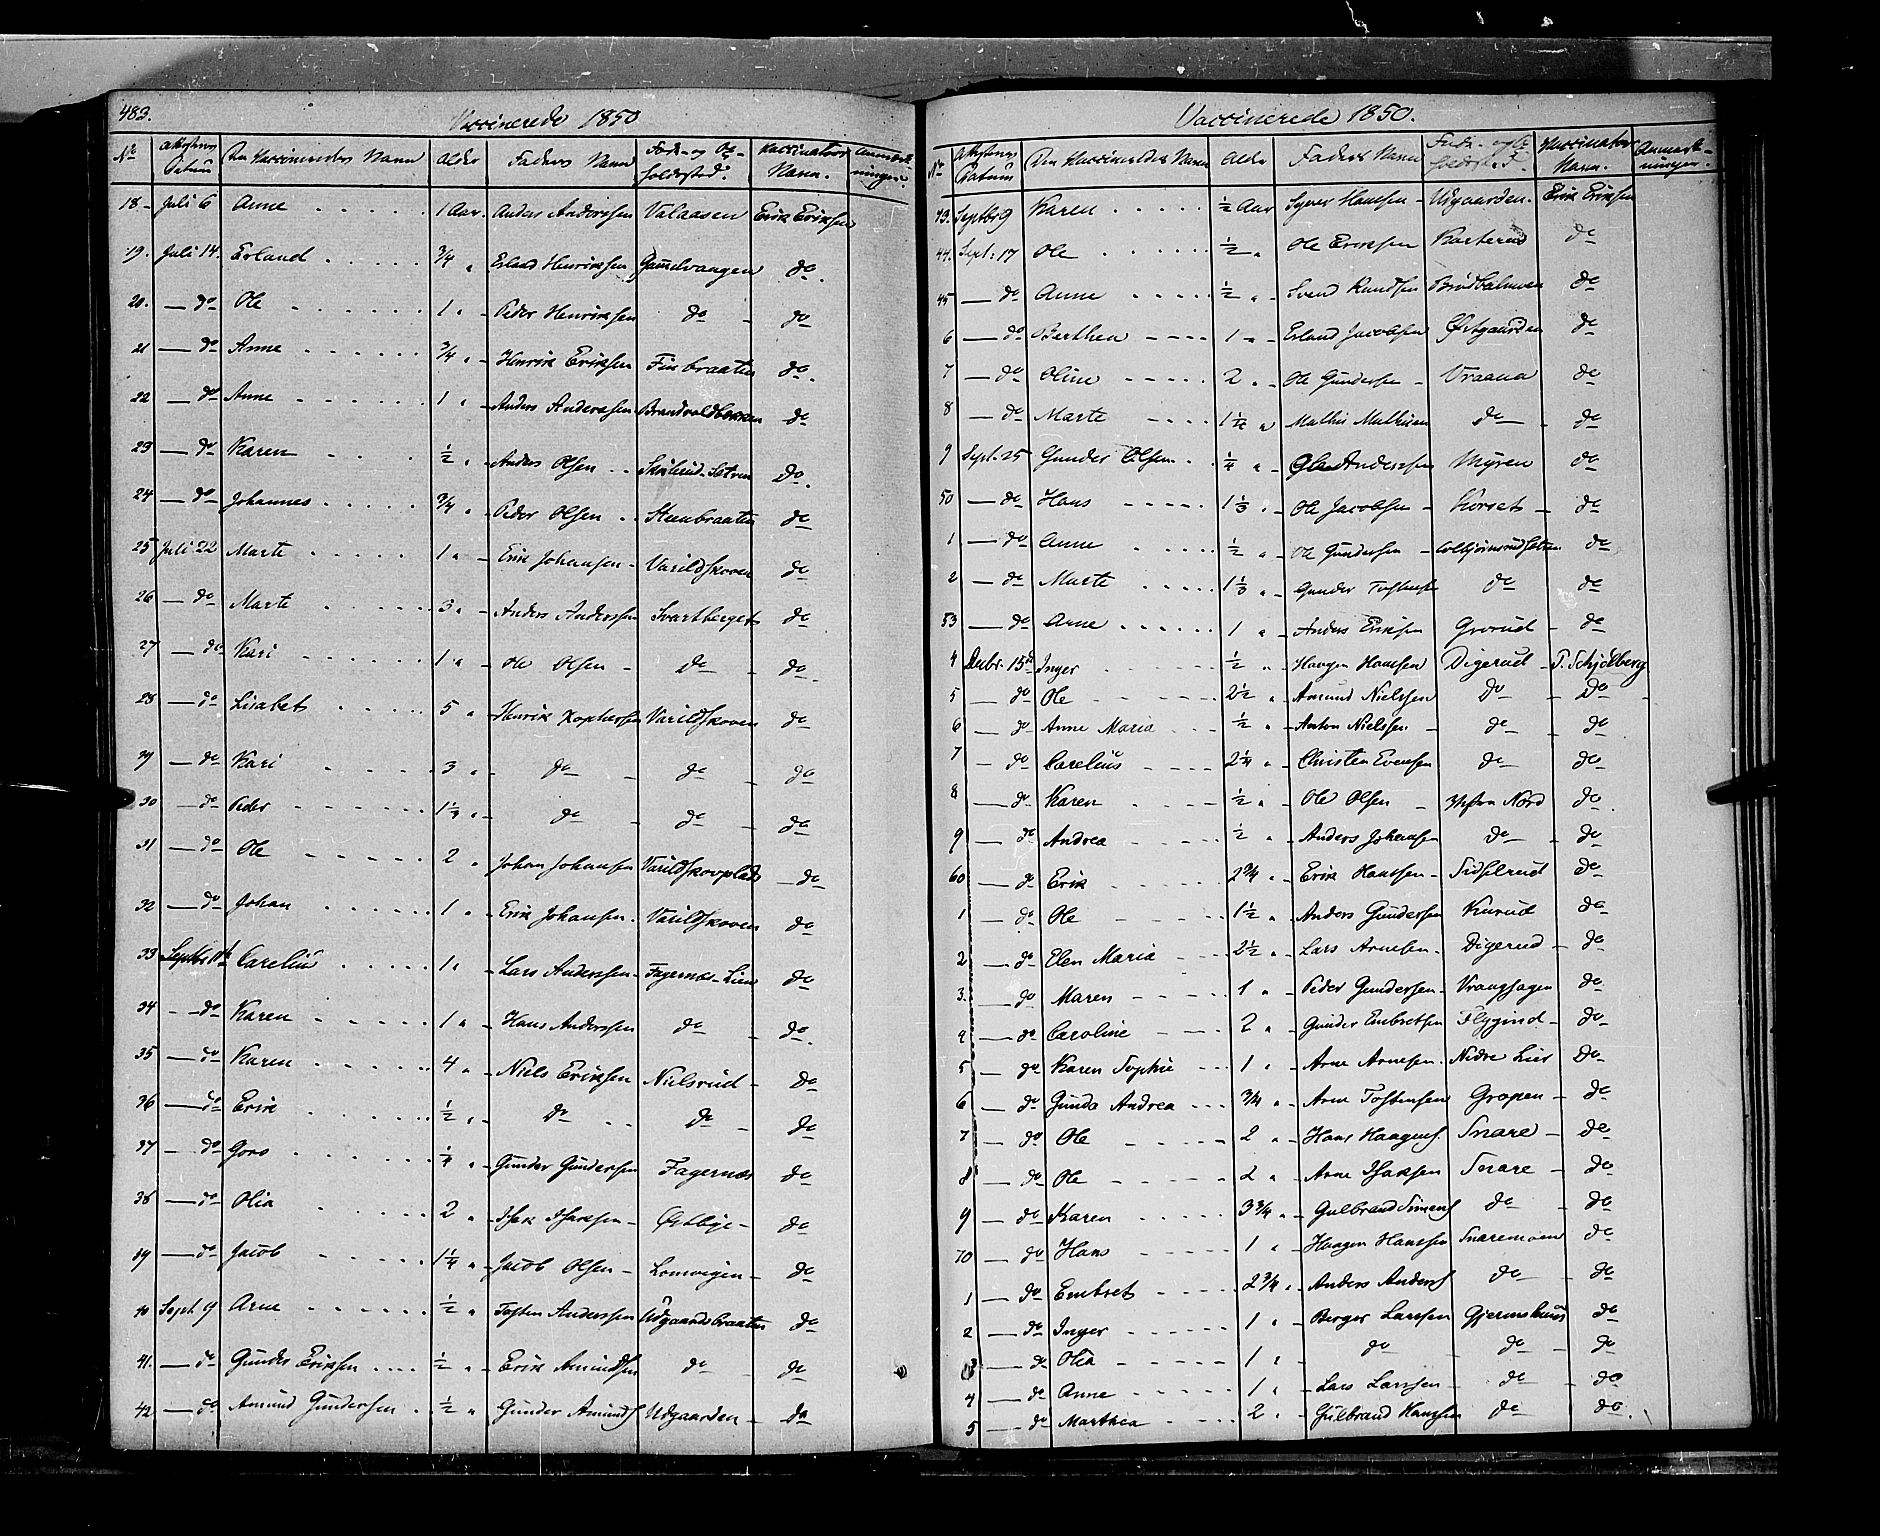 483.
Vaccinerede 1850
No Attestens Datum Den Vaccineredes Navn Alder Faders Navn Føde- og Opholdssted. Vaccinators Navn. Anmærkninger.
18. Juli 6 Anne 1 Aar. Anders Anderssen Valaasen Erik Eriksen
19. Juli 14. Erland 3/4 " Erland Henriksen Gamelvangen do
20. do Ole 1 " Peder Henriksen do do
21 do Anne 3/4 " Henrik Eriksen Finbraaten do.
22 do Anne 1 " Anders Anderssen Brandvoldbakken do
23 do Karen 1/2 " Anders Olsen do.
24 do Johannes 3/4 " Peder Olsen Steenbraaten do
25 Juli 22 Marte 1 " Erik Johansen Varildskoven do
26 do Marte 3 " Anders Anderssen Svartberget do
27 do Kari 1 " Ole Olsen do do
28 do Lisabet 5 " Henrik Varildskoven do
29 do Kari 3 " do do do
30 do Peder 1 1/2 " do do do
31 do Ole 2 " Johan Johansen Varildskovplads do
32 do Johan 1 " Erik Johansen Varildskoven do
33 Septbr Carelius 1 " Lars Anderssen Fagernæs-Lien do
34 do Karen 1 " Hans Anderssen do do.
35 do Karen 4 " Niels Eriksen Nielsrud do
36 do Erik 1/2 " do do do
37 do Goro 1/4 " Gunder Gunderssen Fagernæs do
38 do Olia 2 " Isak Isaksen Østbye do
39 do Jacob 1 1/4 " Jacob Olsen Lomvigen do
40 Sept 9 Arne 1/2 " Tosten Anderssen Udgaardsbraaten do
41. do Gunder Eriksen 1/2 " Erik Amundsen do do
42 do Amund Gundersen 1/2 " Gunder Amunds Udgaarden do
Vaccinerede 1850.
No Attestens Datum Den Vaccineredes Navn Alder Faders Navn Føde- og Opholdsst. Vaccinators Navn. Anmærkninger.
43. Septbr 9 Karen 1/2 Aar Syver Hanssen Udgaarden. Erik Eriksen
44. Sept. 17 Ole 1/2 " Ole Erikssen Kasterud do
45 do Anne 1/2 " Svend Knudsen do
6 do Berthea 1 " Erland Jacobsen Østgaarden do
7 do Oline 2 " Ole Gundersen Vraana do
8 do Marte 1 1/4 " Mathis Mathisen do do
9 Sept. 25 Gunder Olsen 1/4 " Ole Anderssen Myren do
50 do Hans 1 1/3 " Ole Jacobsen Korset do
1 do Anne 1/2 " Ole Gundersen Colbjørnsrudsetren do
2 do Marte 1 1/3 " Gunder Tostensen do do
53 do Arne 1 " Anders Eriksen Grorud do
4 Decbr. 15de Inger 1/2 " Haagen Hanssen Digerud P. Schjølberg
5 do Ole 2 1/2 " Amund Nielssen do do
6 do Anne Maria 1/2 " Anton Nielssen do do
7 do Carelius 2 1/4 " Christen Evensen do do
8 do Karen 1/2 " Ole Olsen Nord do
9 do Andrea 1/2 " Anders Johansen do do
60 do Erik 2 3/4 " Erik Hanssen Sidselrud do
1 do Ole 1 1/2 " Anders Gundersen Kurud do
2 do Elen Maria 2 1/2 " Lars Arnesen Digerud do
3. do Maren 1 " Peder Gundersen Vranghagen do
4 do Caroline 2 " Gunder Embretsen Flygind do
5 do Karen Sophie 1 " Arne Arnesen Nedre Lier do
6 do Gunda Andrea 3/4 " Arne Tostensen Gropen do
7 do Ole 2 " Hans Haagens. Snare do
8 do Ole 2 " Arne Isaksen Snare do
9 do Karen 3 3/4 " Gulbrand Simens do do
70 do Hans 1 " Haagen Hanssen Snaremoen do
1 do Embret 2 3/4 " Anders Anders do do
2 do Inger 1 " Berger Larssen Gjermshuus do
3 do Olia 1 " do do do
4 do Anne 1 " Lars Larssen do do
5 do Marthea 2 " Gulbrand Hanssen do do.